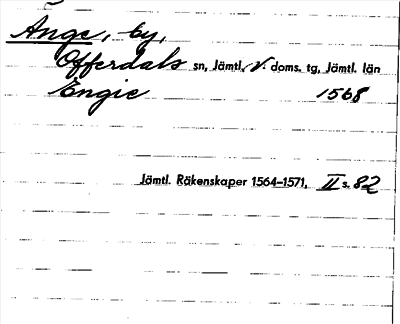 Ånge, by,
Offerdals sn, Jämtl. V. doms. tg, Jämtl. län
Engie 1568
Jämtl. Räkenskaper 1564–1571, II s. 82